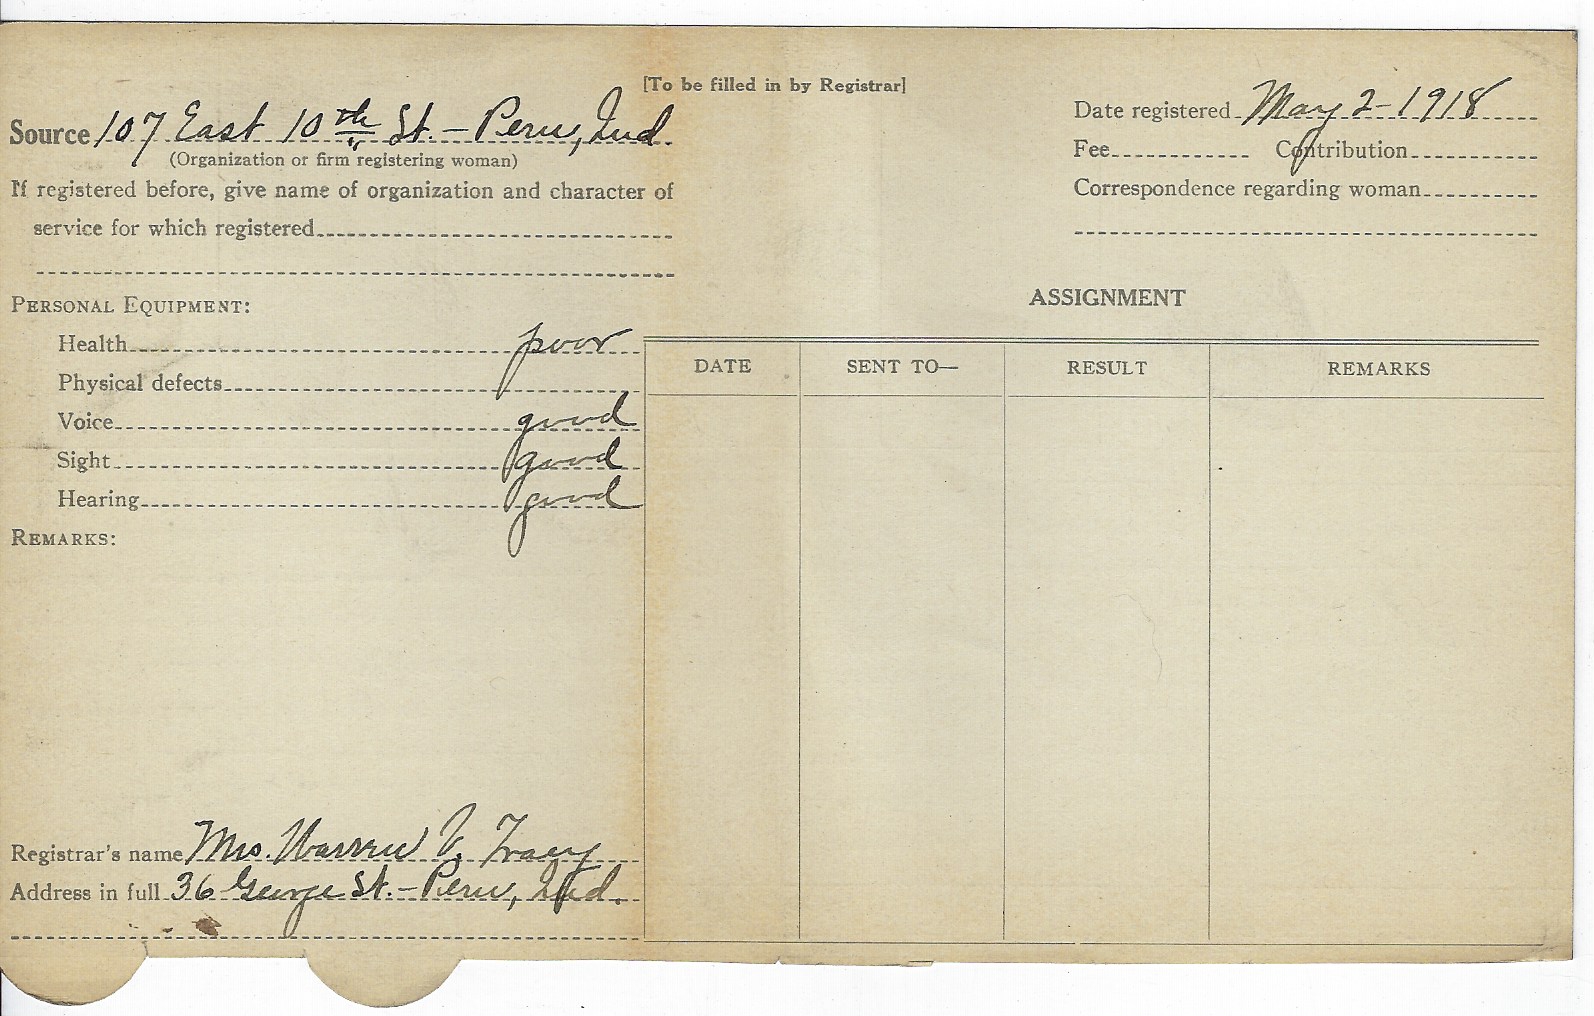 [To be filled in by Registrar]
Source 107 East 10th St. – Peru, Ind.
(Organization or firm registering woman)
If registered before, give name of organization and character of
service for which registered
Date registered May 2 - 1918
Fee Contribution
Correspondence regarding woman
PERSONAL EQUIPMENT:
Health poor
Physical defects
Voice good
Sight good
Hearing good
REMARKS:
ASSIGNMENT
DATE SENT TO— RESULT REMARKS
Registrar's name Mrs. Warren V. Tracy
Address in full 36 George St. – Peru, Ind.